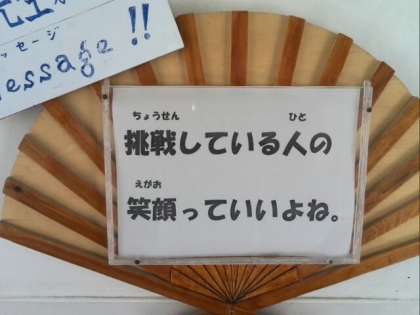 ッセージ
essage!!
ちょうせん ひと
挑戦している人の
えがお
笑顔っていいよね。